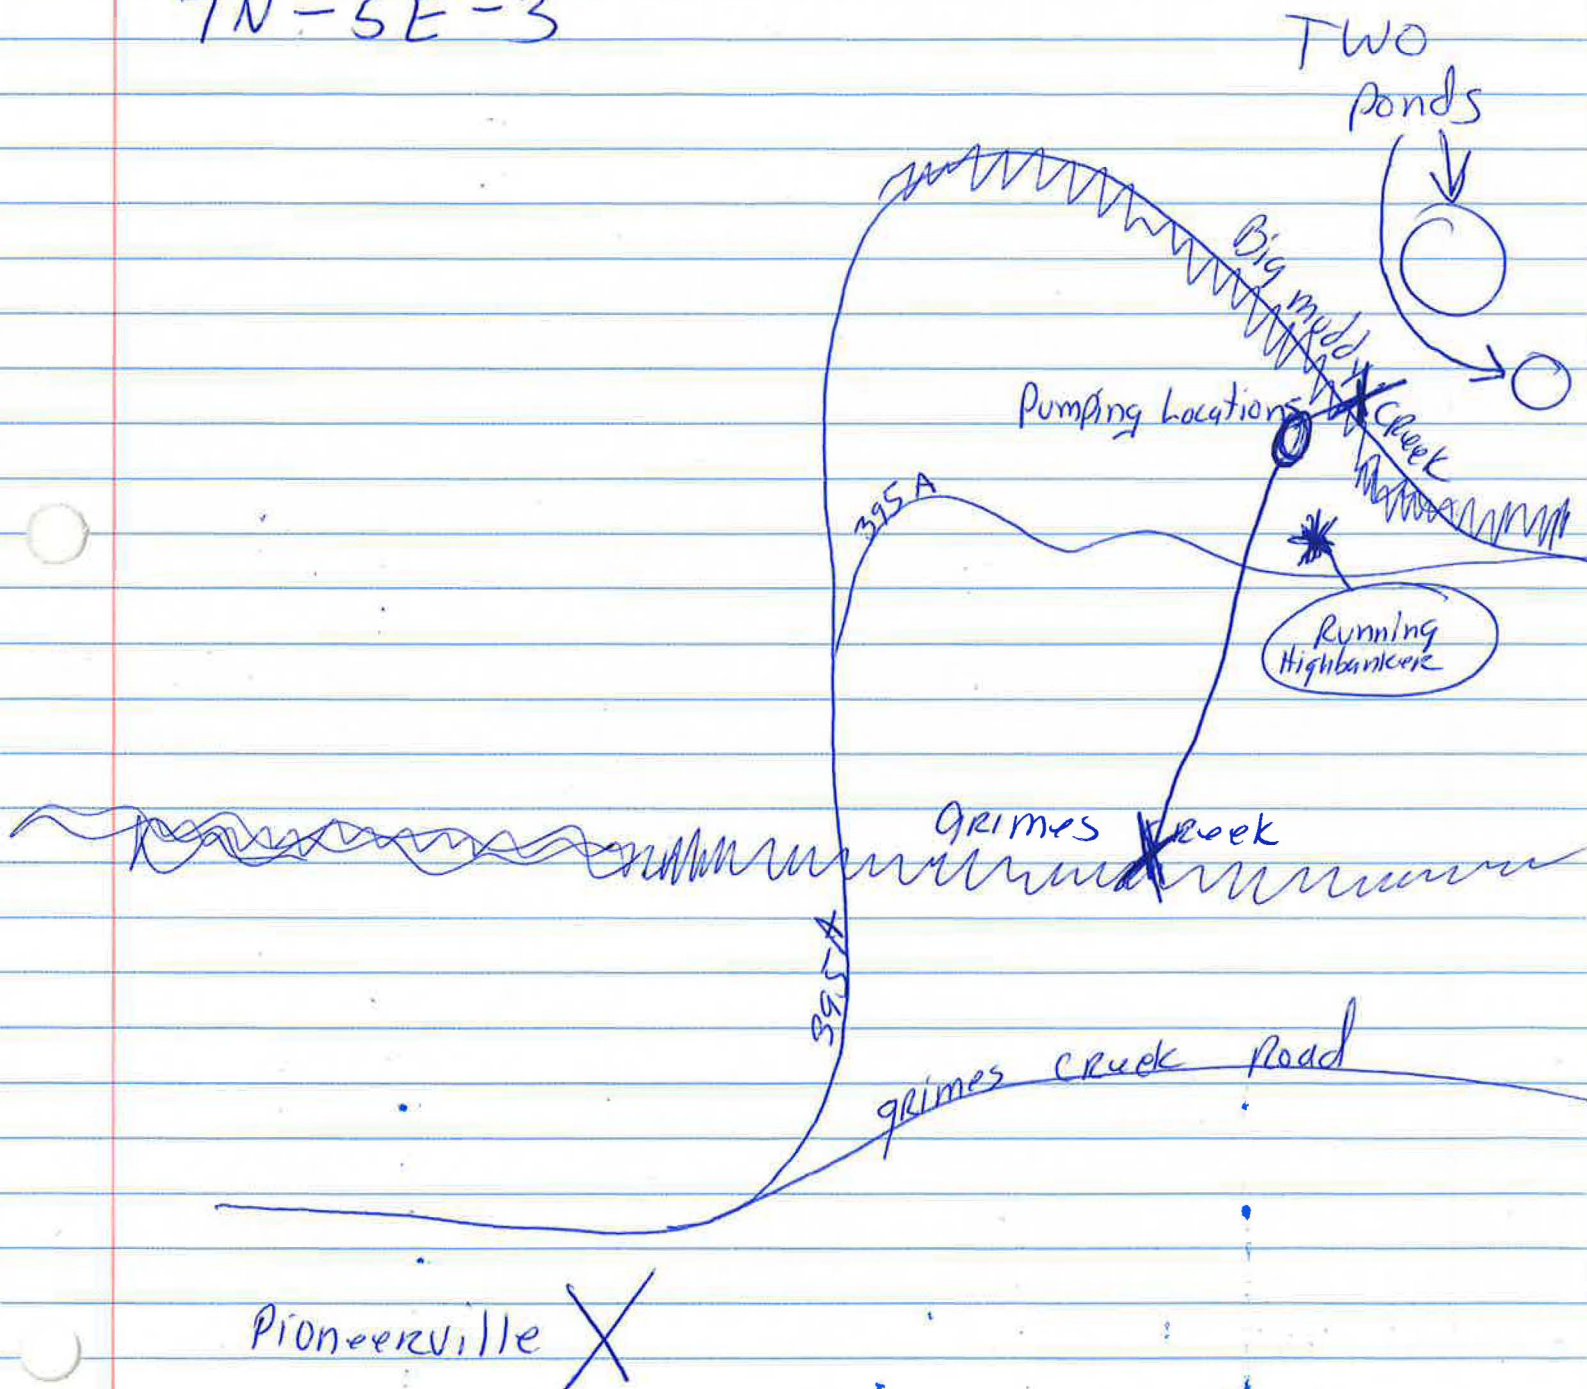 7N-5E-3
TWO
Ponds
Big muddy Creek
Pumping Locations
395A
Running
Highbanker
Grimes Creek
395A
grimes creek Road
Pioneerville X